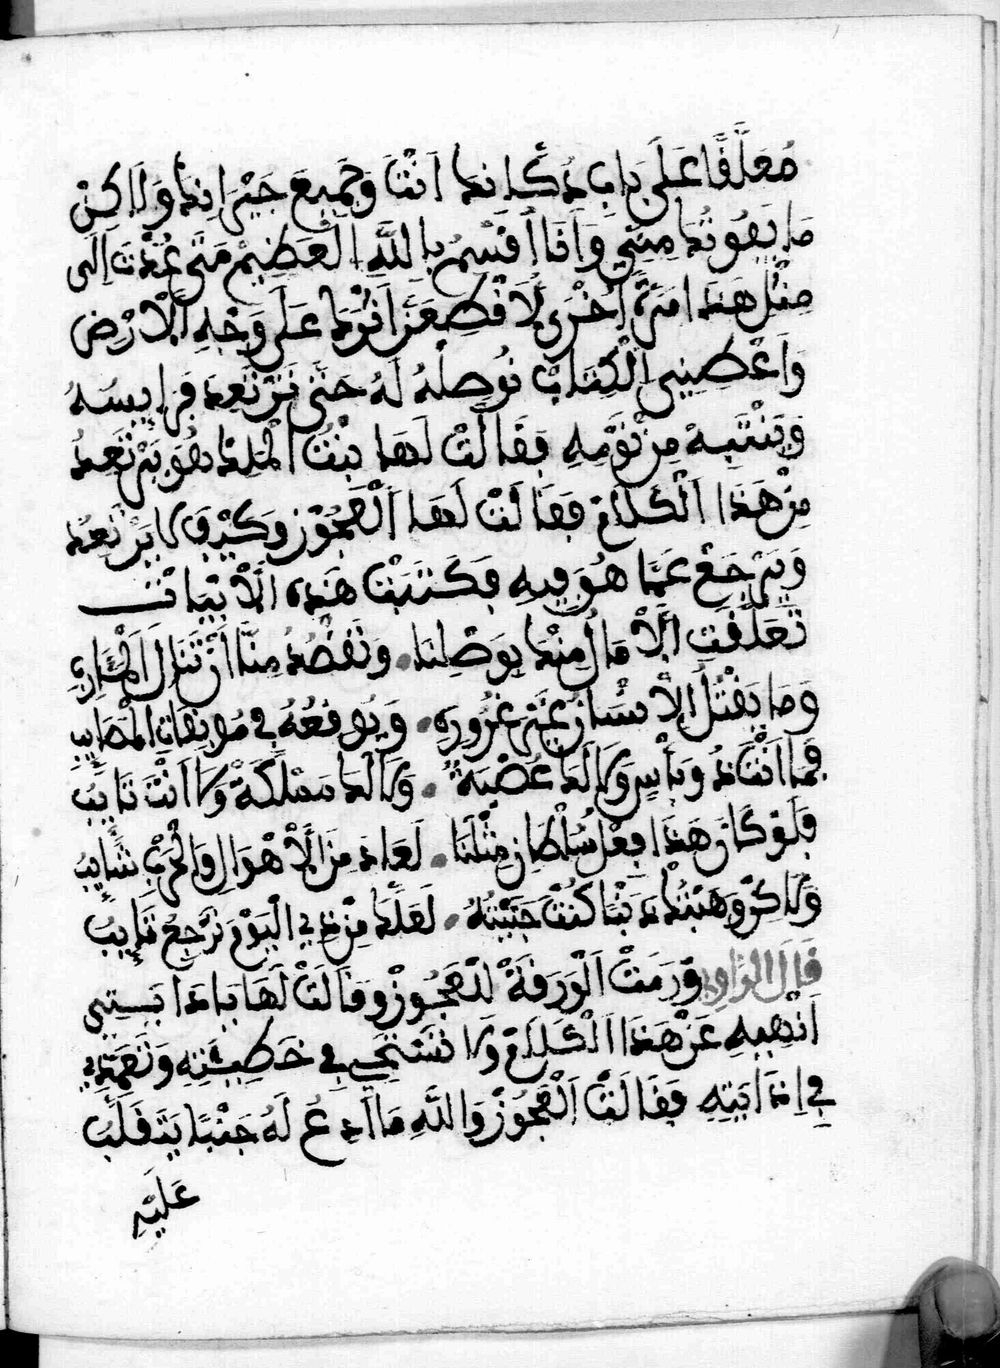 مُعَلَّقًا عَلَى بَابِ دُكَّانِكَ اَنْتَ وَجَمِيعَ جِيْرَانِكَ وَلَاكِنْ
مَا يَفُوتُكَ مِنِّي وَاَنَا اُقْسِمُ بِاللَّهِ الْعَظِيمِ مَتَى عُدْتَ اِلَى
مِثْلِ هَذَا مَرَّةً اُخْرَى لَاَقْطَعَنَّ اَثَرَكَ عَلَى وَجْهِ الْاَرْضِ
وَاَعْطِينِي الْكِتَابْ نُوصِلْهُ لَهُ حَتَّى تَرْتَعِدَ فَرَايِسُهُ
وَيَنْتَبِهْ مِنْ نَوْمِهِ فَقَالَتْ لَهَا بِنْتُ الْمَلِكْ هُوَ يَرْتَعِدُ
مِنْ هَذَا الْكَلَامْ فَقَالَتْ لَهَا الْعَجُوْزْ وَكَيْفَ لَا يَرْتَعِدْ
وَيَرْجَعْ عَمَّا هُوَ فِيهِ فَكَتَبَتْ هَذِهِ الْاَبْيَاتْ
تَعَلَّقَتِ الْاَمَالُ مِنْكَ بِوَصْلِنَا وَتَقْصُدُ مِنَّا اَنْ تَنَالَ الْمَأَارِبِ
وَمَا يَقْتُلُ الْاِنْسَانَ غَيْرُ غُرُورِهِ وَيُوقِعُهُ فِي مُوبِقَاتِ الْمَصَايِبِ
فَمَا اَنْتَ ذُو بَأْسٍ وَلَا لَكَ عُصْبَةٌ وَلَا لَكَ مَمْلَكَةْ وَلَا اَنْتَ نَايِبُ
فَلَوْ كَانَ هَذَا فِعْلُ سُلْطَانِ مِثْلَنَا لَعَادَ مِنَ الْاَهْوَالِ وَالْحَرْبِ شَايِبُ
وَلَاكِنْ وَهَبْتُكَ ذَنْبَا كُنْتَ جَنَيْتَهُ لَعَلَّكَ مِنْ ذِي الْيَوْمْ تَرْجِعُ تَايِبُ
قَالَ الرَّاوِي وَرَمَتْ الْوَرَقَةْ لِلْعَجُوزْ وَقَالَتْ لَهَا يَا دَا يَسْتِي
اَنْهِيهِ عَنْ هَذَا الْكَلَامْ وَلَا نَسْتَحِي فِي خَطِيئَتِهِ وَنَعْمَدِي
فِي اِذَايَتِهِ فَقَالَتْ الْعَجُوزْ وَاللَّهِ مَا اَدَعُ لَهُ جَنْبًا يَتَقَلَّبُ
عَلَيْهِ